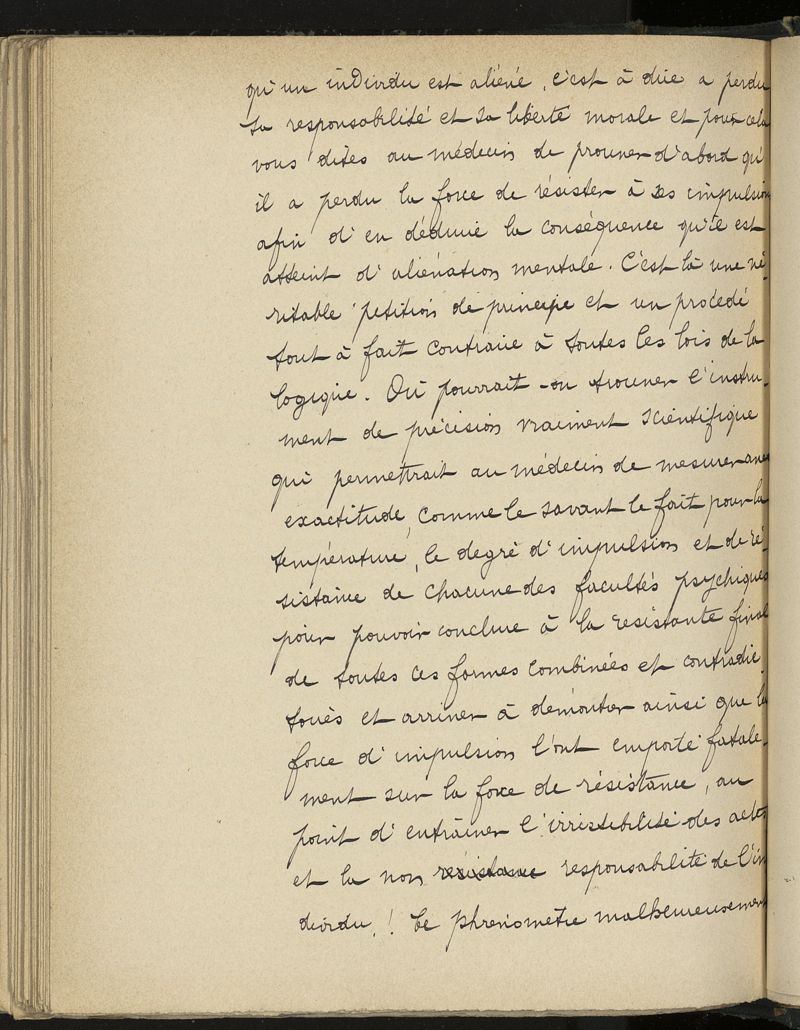 qu'un individu est aliéné, c'est à dire a perdu
sa responsabilité et sa liberté morale et pour cela
vous dites au médecin de prouver d'abord qu'
il a perdu la force de résister à ses impulsions
afin d'en déduire la conséquence qu'il est
atteint d'aliénation mentale. C'est là une vé-
ritable petition de principe et un procédé
tout à fait contraire à toutes les lois de la
logique. Où pourrait-on trouver l'instru-
ment de précision vraiment scientifique
qui permettrait au médecin de mesurer avec
exactitude, comme le savant le fait pour la
température, le degré d'impulsion et de ré-
sistance de chacune des facultés psychiques
pour pouvoir conclure à la resistante final
de toutes ces formes combinées et contradic
toires et arriver à démontrer ainsi que la
force d'impulsion l'ont emporté fatale-
ment sur la force de résistance, au
point d'entrainer l'irristibilité des actes
et la non résistance responsabilité de l'in
dividu! Le phrénomètre malheureusement